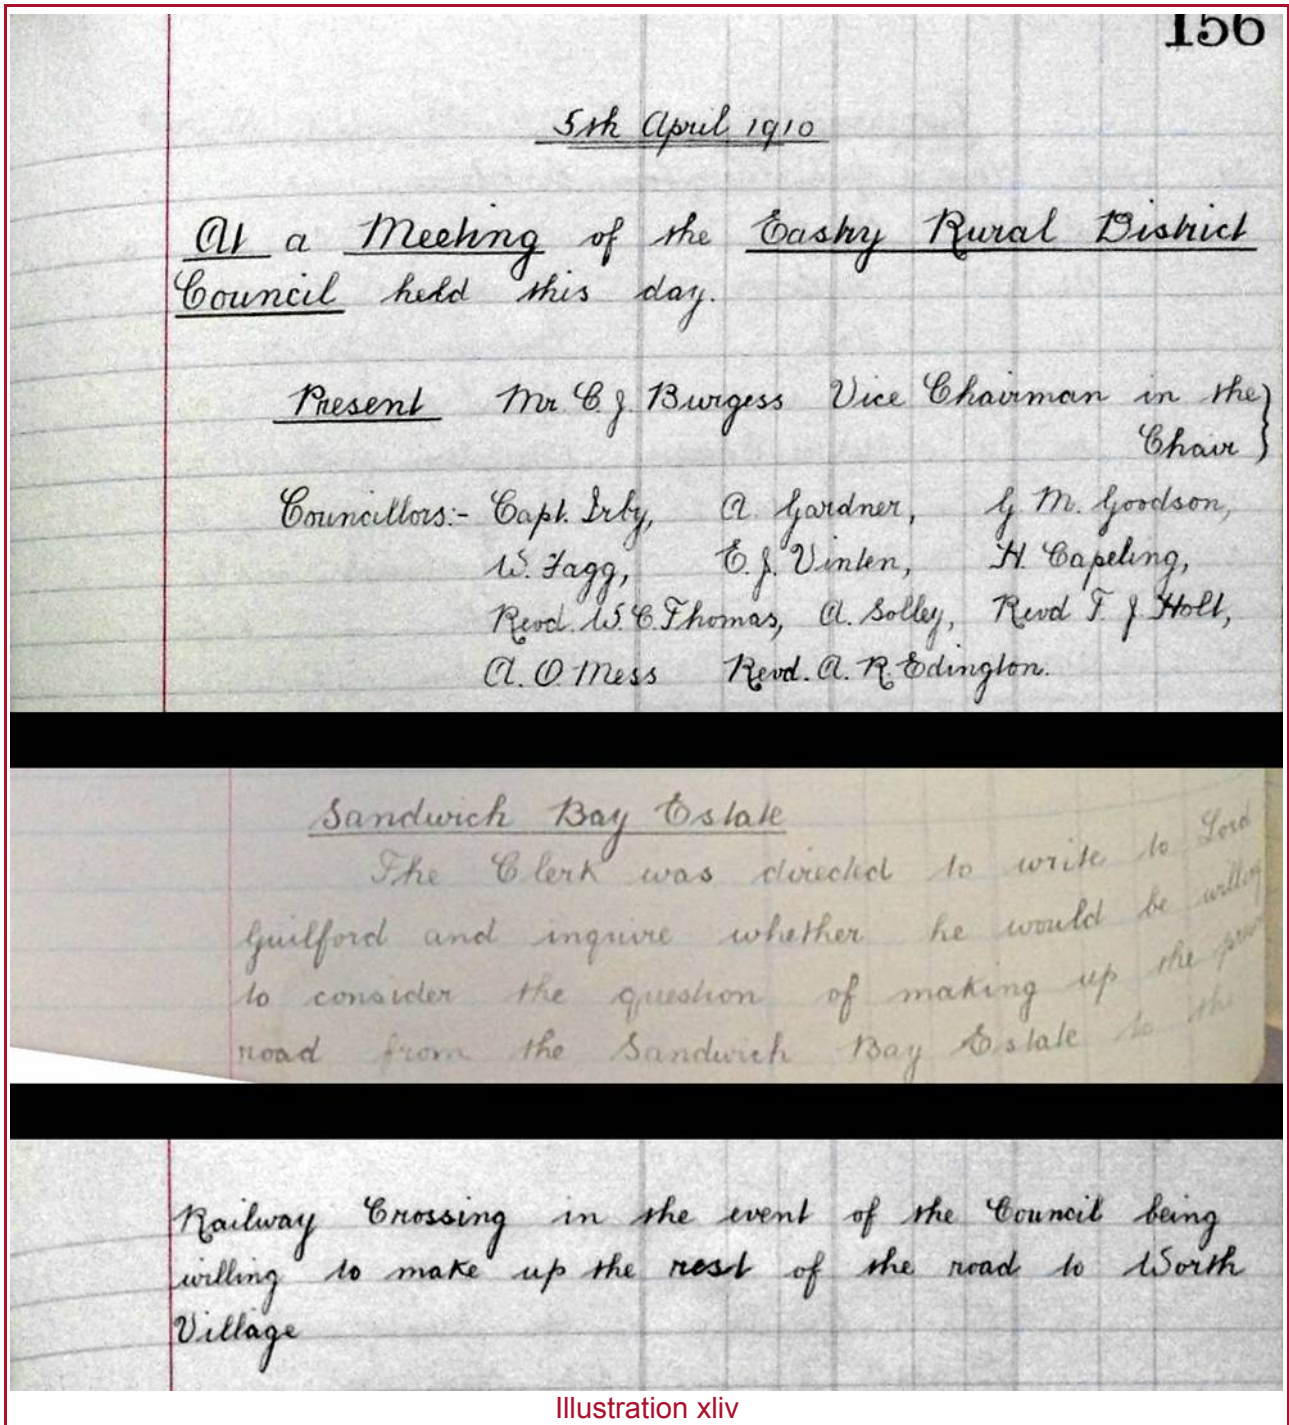 156
5th April 1910
At a Meeting of the Eastry Rural District
Council held this day.
Present Mr C. J. Burgess Vice Chairman in the
Chair
Councillors:- Capt. Irby, A. Gardner, G M. Goodson,
W. Fagg, E. J. Vinten, H. Capeling,
Revd. W. C. Thomas, A. Solley, Revd T. J Holt,
A. O. Mess Revd. A. R. Edington.
Sandwich Bay Estate
The Clerk was directed to write to Lord
Guilford and inquire whether he would be willing
to consider the question of making up the
road from the Sandwich Bay Estate to the
Railway Crossing in the event of the Council being
willing to make up the rest of the road to Worth
Village
Illustration xliv